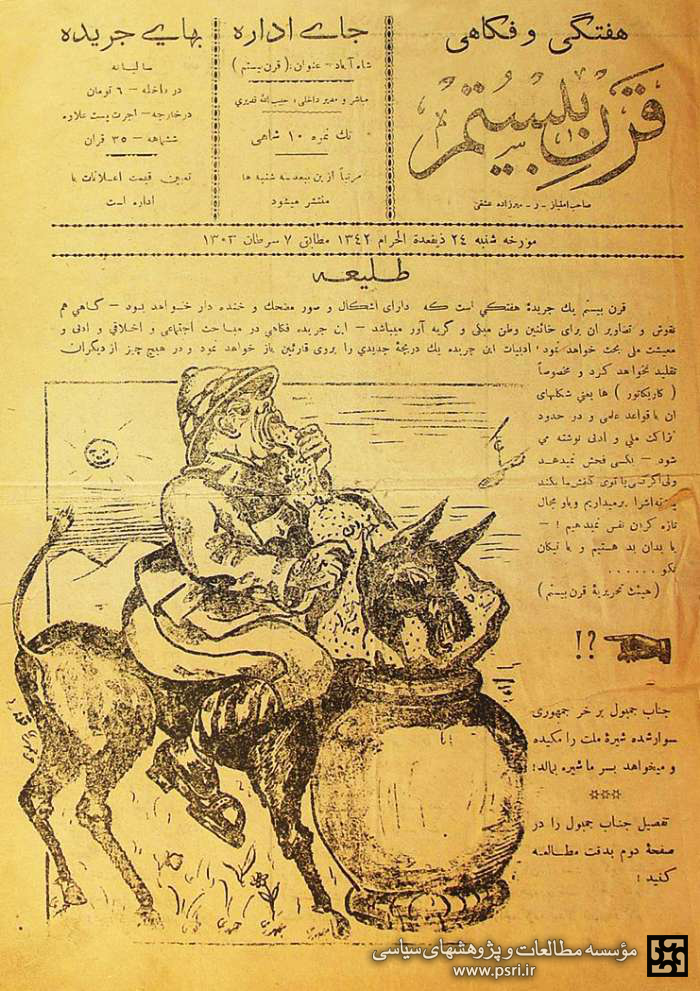 هفتگی و فکاهی
قرن بیستم
صاحب امتیاز - ر - میرزاده عشقی
جای اداره
شاه آباد - عنوان : ( قرن بیستم )
مباشر و مدیر داخلی : حبیب الله قدیری
تك نمره ۱۰ شاهی
مرتباً از این ببعد سه شنبه ها
منتشر میشود
بهای جریده
سالیانه
در داخله - ۶ تومان
در خارجه - اجرت پست علاوه
ششماهه - ۳۵ قران
تعیین قیمت اعلانات با
اداره است
مورخه شنبه ۲۴ ذیقعدة الحرام ۱۳۴۲ مطابق ۷ سرطان ۱۳۰۳
طلیعه
قرن بیستم یك جریدهٔ هفتگی است که دارای اشکال و صور مضحك و خنده دار خواهد بود - گاهی هم
نقوش و تصاویر ان برای خائنین وطن مبکی و گریه آور میباشد - این جریده فکاهی در مباحث اجتماعی و اخلاقی و ادبی و
معیشت ملی بحث خواهد نمود ، ادبیات این جریده یك دریچهٔ جدیدی را بروی قارئین باز خواهد نمود و در هیچ چیز از دیگران
تقلید نخواهد کرد و مخصوصاً
( کاریکاتور ) ها یعنی شکلهای
ان با قواعد علمی و در حدود
نزاکت ملی و ادبی نوشته می
شود - بکسی فحش نمیدهد
ولی اگر کسی پا توی کفش ما بکند
را برمیداریم و باو مجال
تازه کردن نفس نمیدهیم ! -
با بدان بد هستیم و با نیکان
نکو ......
( هیئت تحریریهٔ قرن بیستم )
!?
جناب جمبول بر خر جمهوری
سوار شده شیرهٔ ملت را مکیده
و میخواهد بسر ما شیره بمالد !
***
تفصیل جناب جمبول را در
صفحهٔ دوم بدقت مطالعه
کنید !
مؤسسه مطالعات و پژوهشهای سیاسی
www.psri.ir